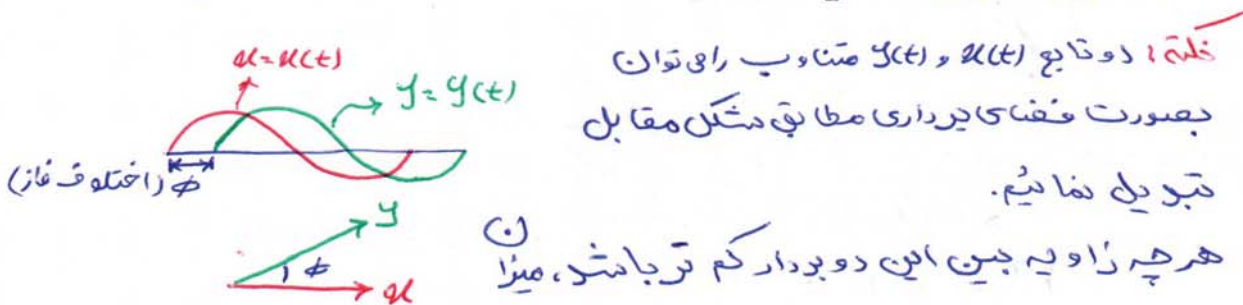 نکته: دو تابع x(t) و y(t) متناوب را می توان
بصورت فضای برداری مطابق شکل مقابل
تبدیل نمائیم.
هر چه زاویه بین این دو بردار کم تر باشد، میزان
x=x(t)
y=y(t)
φ (اختلاف فاز)
y
φ
x